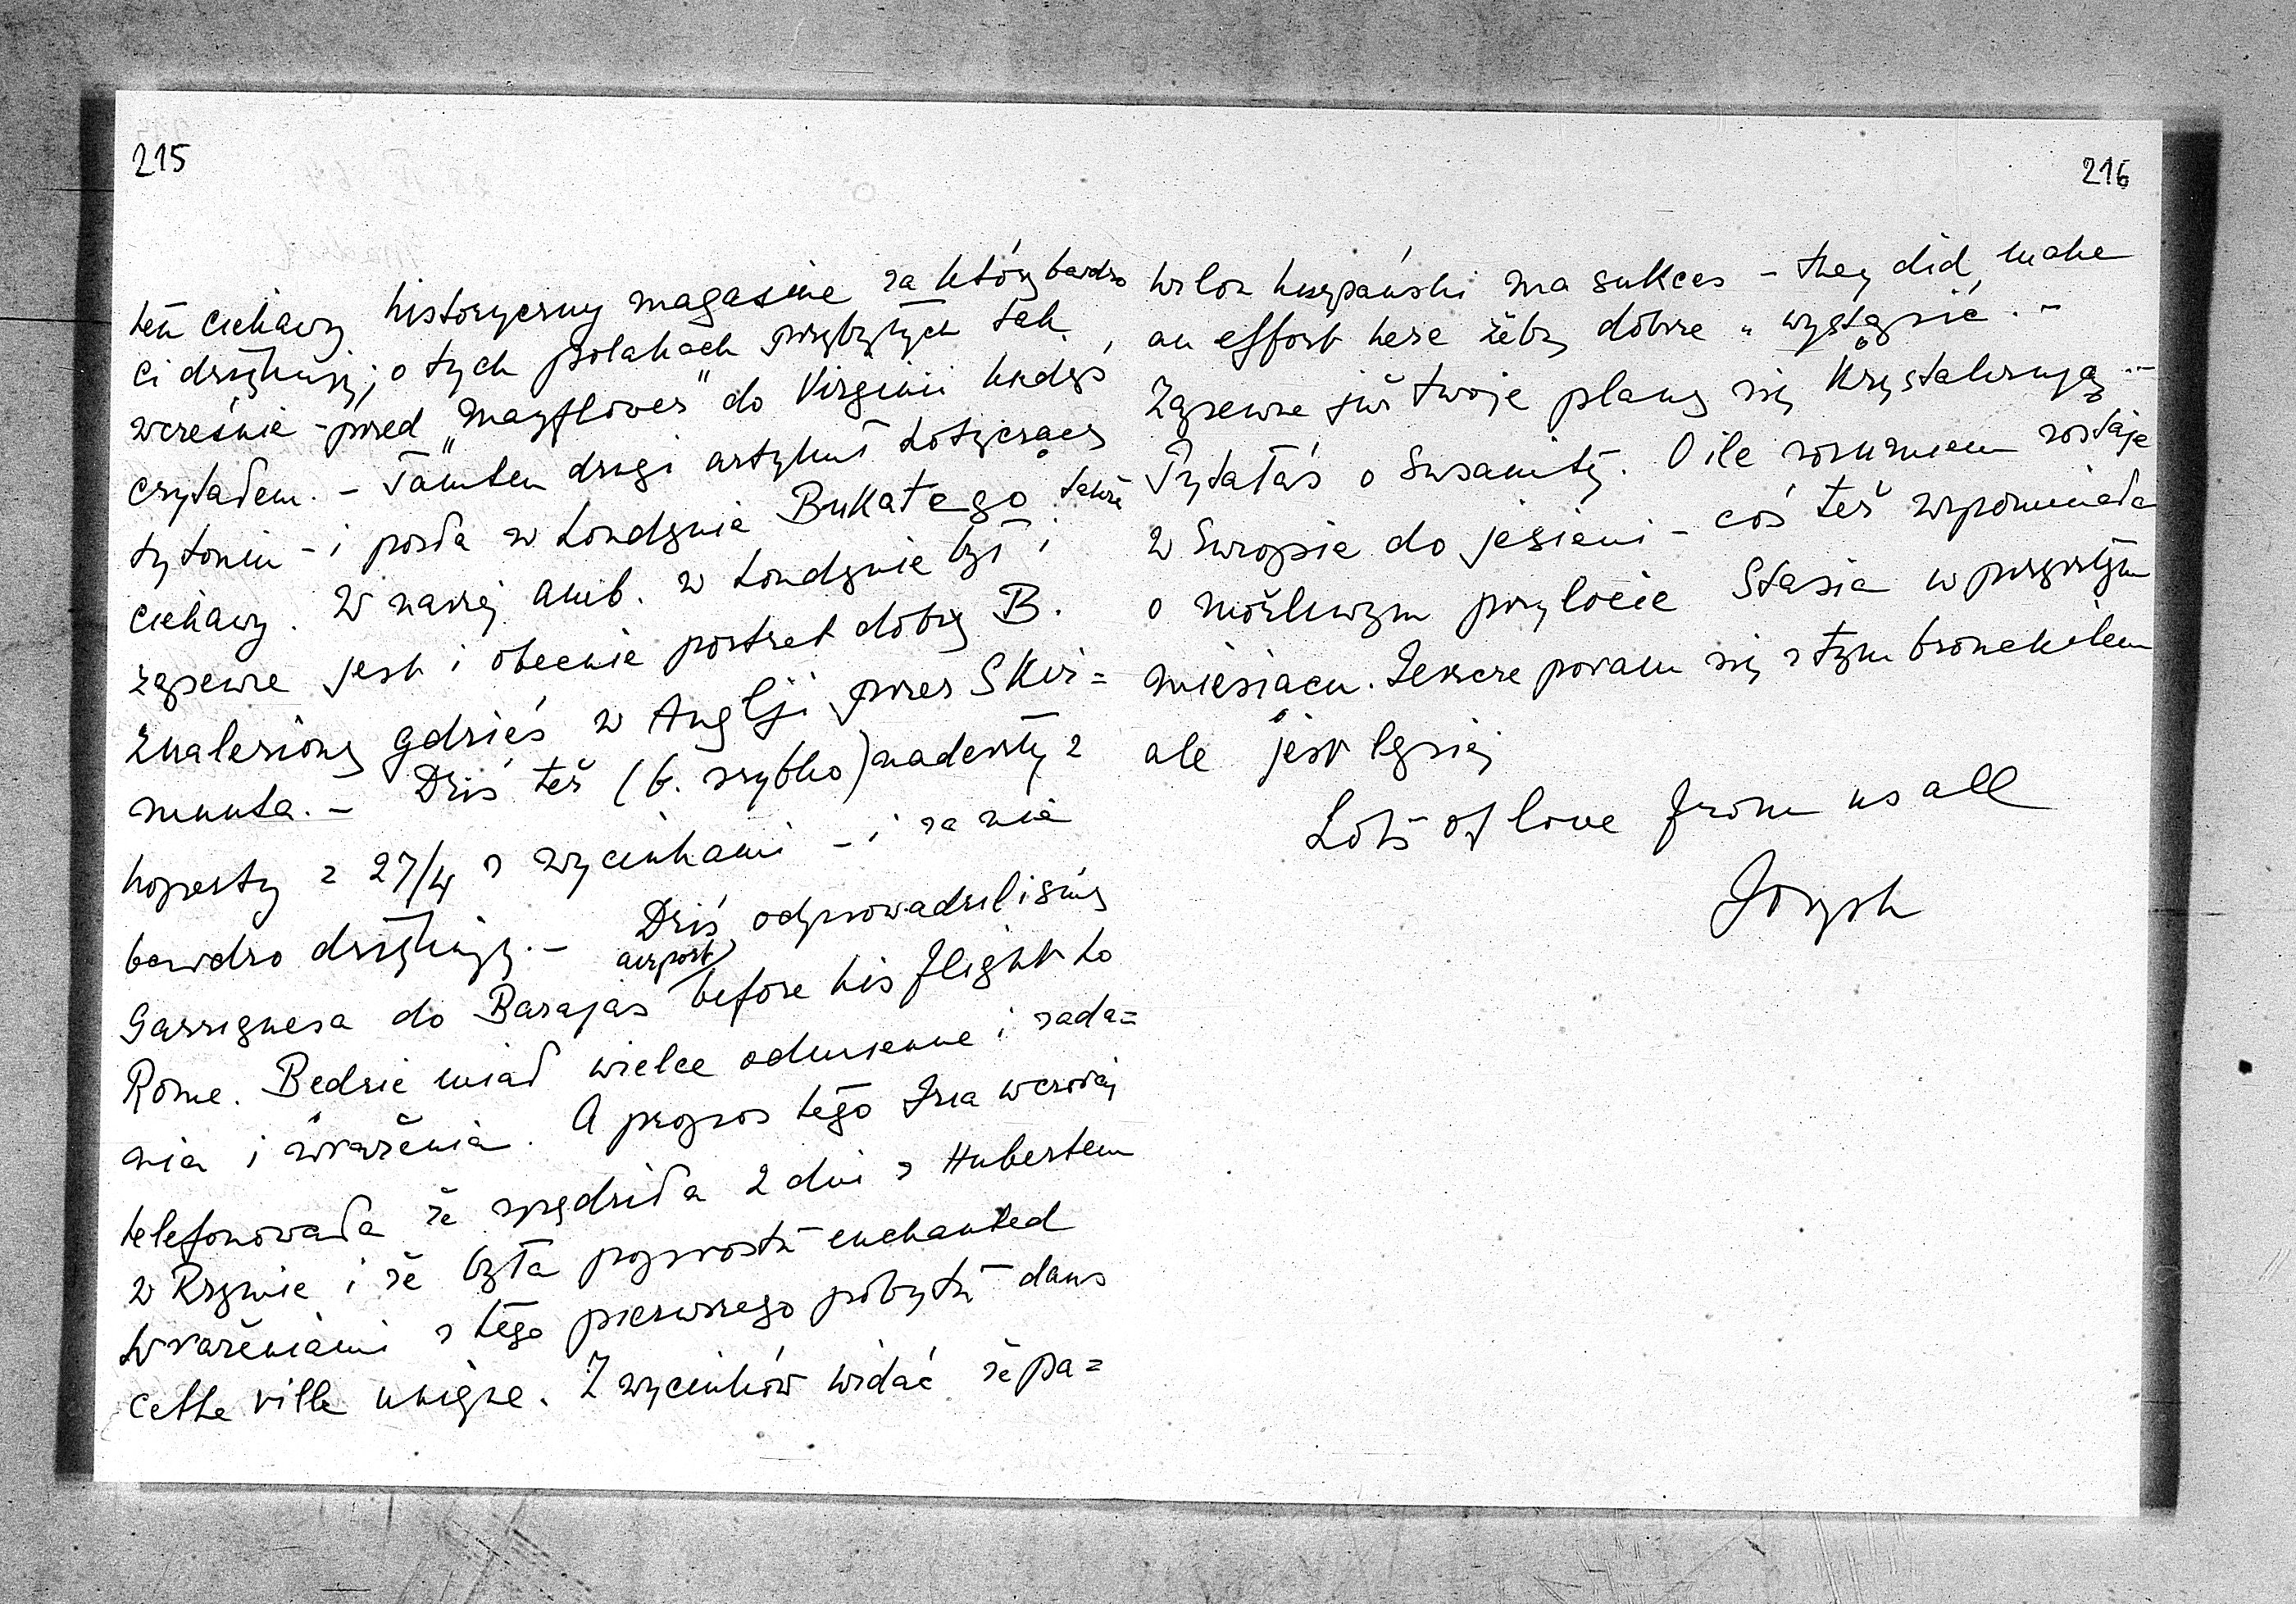 215
ten ciekawy historyczny magazine za który bardzo
ci dziękuję; o tych polakach przybyłych tak
wcześnie - przed "Mayflover" do Virginii kiedyś
czytałem. - Tamten drugi artykuł dotyczący
tytoniu - i posła w Londynie Bukatego także
ciekawy. W naszej amb. w Londynie był i
zapewne jest i obecnie portret dobry B.
znaleziony gdzieś w Anglji przez Skir=
munta. - Dziś też (b. szybko) nadeszły 2
koperty z 27/4 z wycinkami - i za nie
bardzo dziękuję. - Dziś odprowadziliśmy
airport
Garriguesa do Barajas before his flight to
Rome. Bedzie miał wielce odmienne i zada=
nia i wrażenia. A propos tego Iza wczoraj
telefonowała że spędziła 2 dni z Hubertem
w Rzymie i że była poprostu enchanted
wrażeniami z tego pierwszego pobytu dans
cette ville unique. Z wycinków widać że pa=
216
wilon hiszpański ma sukces - they did make
an effort here żeby dobrze "wystąpić". -
Zapewne już twoje plany się krystalizują --
Pytałaś o Susanitę. O ile rozumiem zostaje
w Europie do jesieni - coś też wspominała
o możliwym przylocie Stasia w przyszłym
miesiącu. Jeszcze param się z tym bronchitem
ale jest lepiej
Lots of love from us all
Joseph